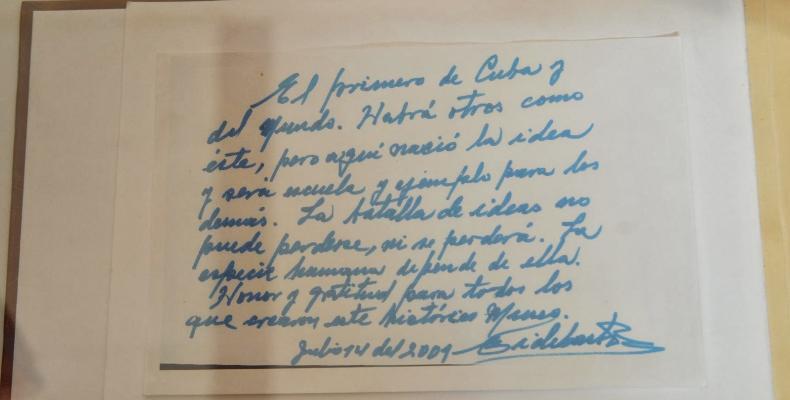 El primero de Cuba y
del Mundo. Habrá otros como
éste, pero aquí nació la idea
y será escuela y ejemplo para los
demás. La batalla de ideas no
puede perderse, ni se perderá. La
especie humana depende de ella.
Honor y gratitud para todos los
que crearon este histórico Museo.
Julio 14 del 2001